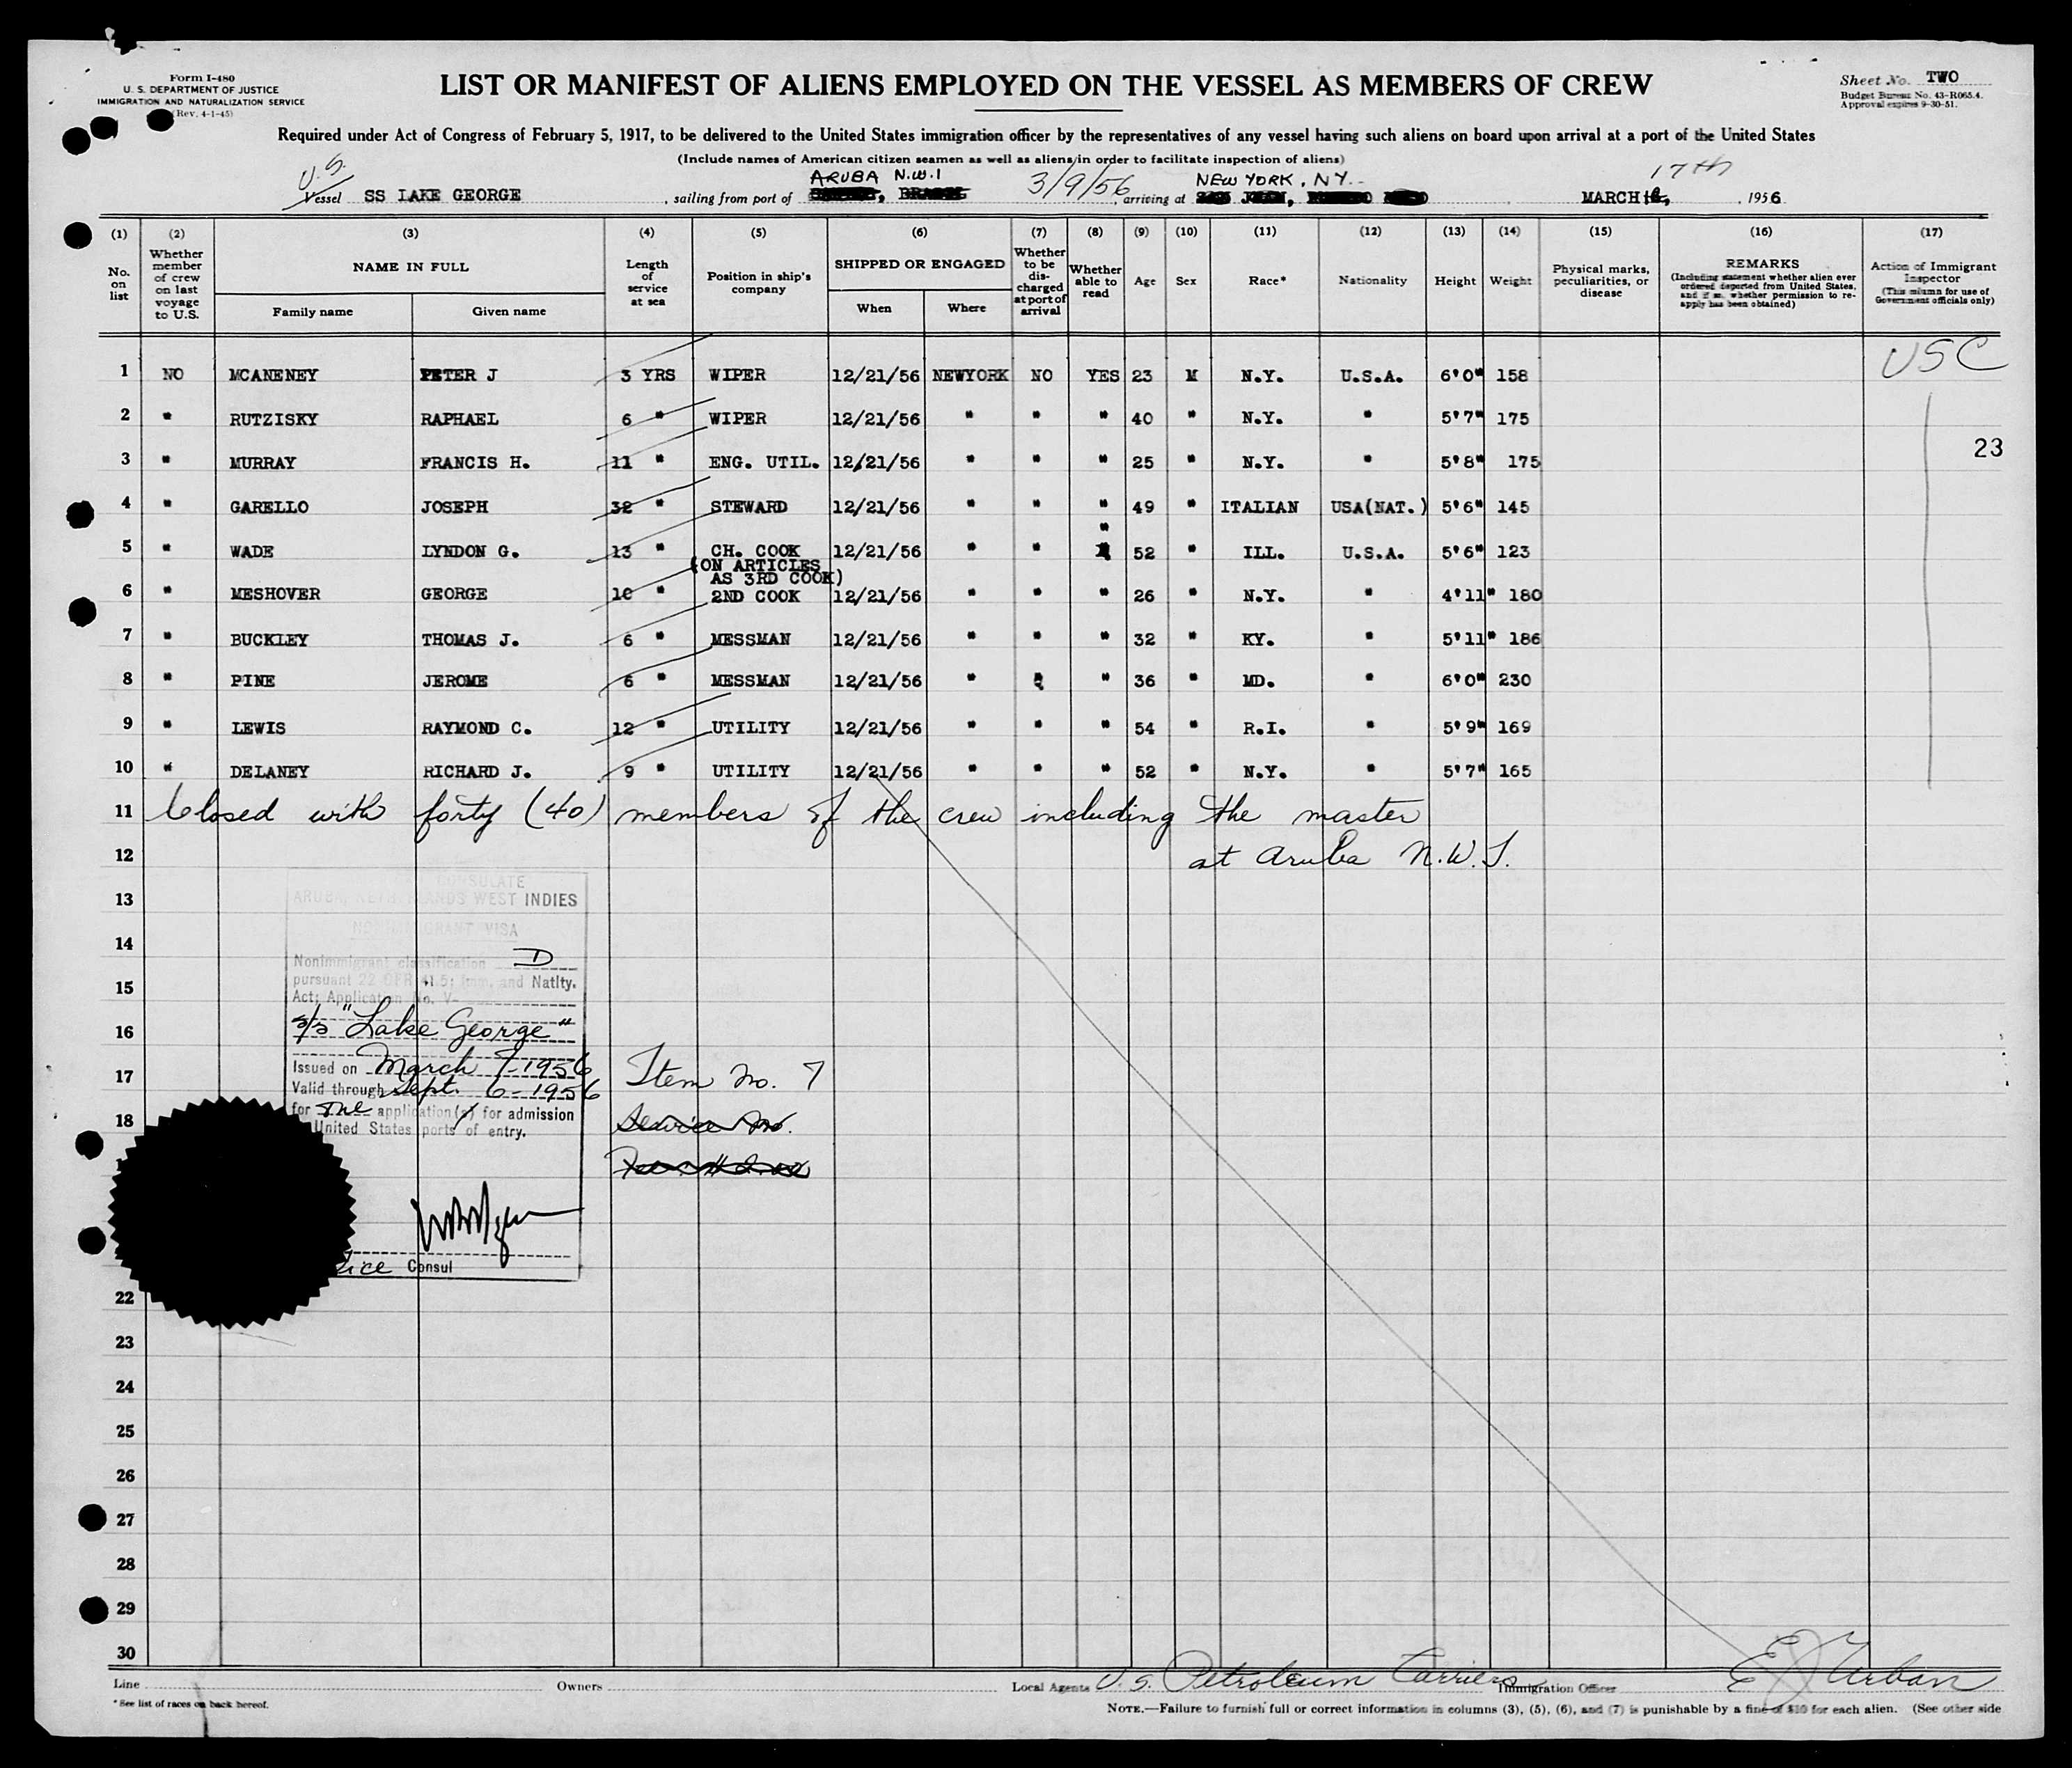 Form I-480
U. S. DEPARTMENT OF JUSTICE
IMMIGRATION AND NATURALIZATION SERVICE
(Rev. 4-1-45)
LIST OR MANIFEST OF ALIENS EMPLOYED ON THE VESSEL AS MEMBERS OF CREW
Sheet No. TWO
Budget Bureau No. 43-R065.4.
Approval expires 9-30-51.
Required under Act of Congress of February 5, 1917, to be delivered to the United States immigration officer by the representatives of any vessel having such aliens on board upon arrival at a port of the United States
(Include names of American citizen seamen as well as aliens in order to facilitate inspection of aliens)
U.S. ARUBA N.W.I 3/9/56 NEW YORK, NY. 17th
Vessel SS LAKE GEORGE , sailing from port of , arriving at MARCH , 1956
(1) (2) (3) (4) (5) (6) (7) (8) (9) (10) (11) (12) (13) (14) (15) (16) (17)
No. on list
Whether member of crew on last voyage to U.S.
NAME IN FULL
Family name Given name
Length of service at sea
Position in ship's company
SHIPPED OR ENGAGED
When Where
Whether to be discharged at port of arrival
Whether able to read
Age Sex Race* Nationality Height Weight
Physical marks, peculiarities, or disease
REMARKS
(Including statement whether alien ever ordered deported from United States, and if so, whether permission to reapply has been obtained)
Action of Immigrant Inspector
(This column for use of Government officials only)
1 NO MCANENEY PETER J 3 YRS WIPER 12/21/56 NEWYORK NO YES 23 M N.Y. U.S.A. 6'0" 158 USC
2 " RUTZISKY RAPHAEL 6 " WIPER 12/21/56 " " " 40 " N.Y. " 5'7" 175
3 " MURRAY FRANCIS H. 11 " ENG. UTIL. 12/21/56 " " " 25 " N.Y. " 5'8" 175 23
4 " GARELLO JOSEPH 32 " STEWARD 12/21/56 " " " 49 " ITALIAN USA(NAT.) 5'6" 145
5 " WADE LYNDON G. 13 " CH. COOK 12/21/56 " " " 52 " ILL. U.S.A. 5'6" 123
(ON ARTICLES
AS 3RD COOK)
6 " MESHOVER GEORGE 10 " 2ND COOK 12/21/56 " " " 26 " N.Y. " 4'11" 180
7 " BUCKLEY THOMAS J. 6 " MESSMAN 12/21/56 " " " 32 " KY. " 5'11" 186
8 " PINE JEROME 6 " MESSMAN 12/21/56 " " " 36 " MD. " 6'0" 230
9 " LEWIS RAYMOND C. 12 " UTILITY 12/21/56 " " " 54 " R.I. " 5'9" 169
10 " DELANEY RICHARD J. 9 " UTILITY 12/21/56 " " " 52 " N.Y. " 5'7" 165
11 Closed with forty (40) members of the crew including the master
12 at Aruba N.W.I.
CONSULATE
13 ARUBA, NETHERLANDS WEST INDIES
NONIMMIGRANT VISA
14
Nonimmigrant classification D
pursuant 22 CFR 41.5; Imm. and Natlty.
15
Act; Application No. V-
16 s/s "Lake George"
Issued on March 7-1956
17 Item No. 7
Valid through Sept. 6-1956
for one application(s) for admission
18 Service No.
United States ports of entry.
Vice Consul
22
23
24
25
26
27
28
29
30
Line Owners Local Agents U.S. Petroleum Carriers Immigration Officer E J Urban
*See list of races on back hereof.
NOTE.—Failure to furnish full or correct information in columns (3), (5), (6), and (7) is punishable by a fine of $10 for each alien. (See other side